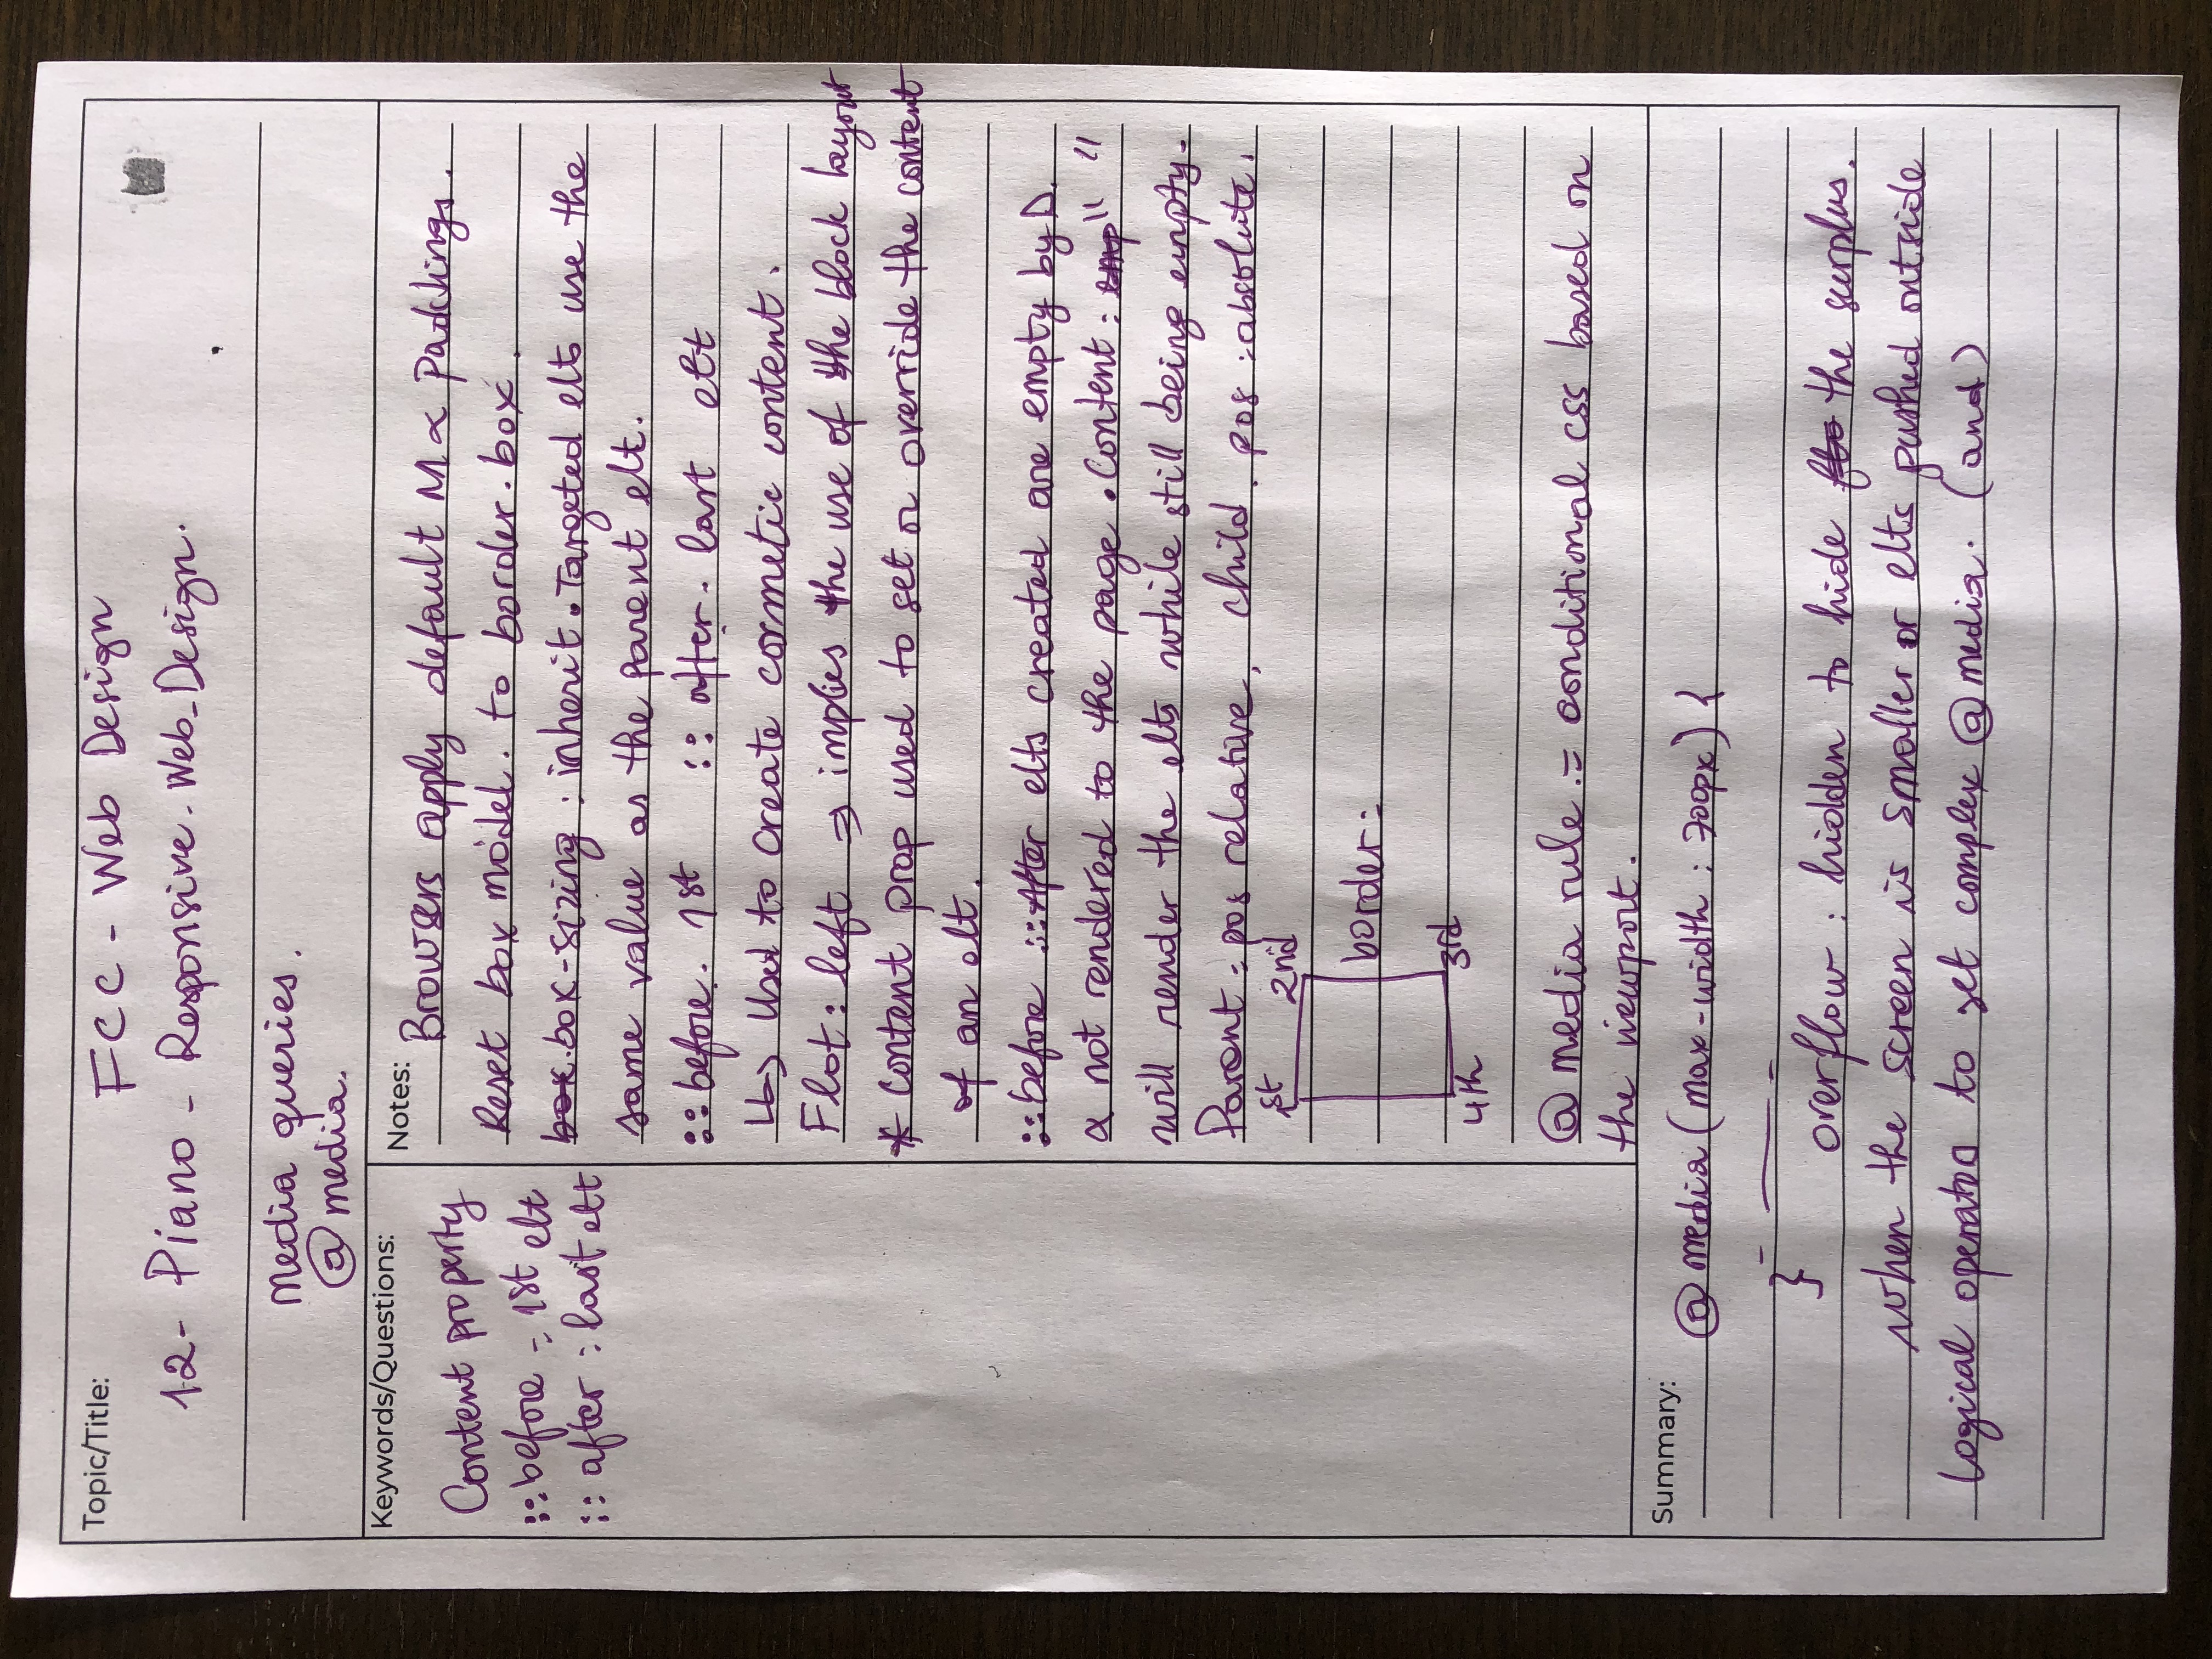 Topic/Title:
FCC - Web Design
12- Piano - Responsive. Web-Design.
Media queries.
@media.
Keywords/Questions:
Content property
::before = 1st elt
:: after : last elt
Notes:
Browsers apply default M & Paddings.
Reset box model. to border.box.
box.box-sizing : inherit. Targeted elts use the
same value as the parent elt.
::before. 1st :: after. last elt
↳ Used to create cosmetic content.
Flot: left ⇒ implies the use of the block layout
* Content prop used to set or override the content
of an elt.
::before ::After elts created are empty by D.
& not rendered to the page. Content: emp " "
will render the elts while still being empty.
Parent = pos relative, child. pos :absolute.
1st 2nd
border:
4th 3rd
@ media rule. = conditional css based on
the viewport.
Summary:
@ media (max-width : 700px) {
}
overflow : hidden to hide the surplus.
when the screen is smaller or elts pushed outside
Logical operator to set complex @media. (and)